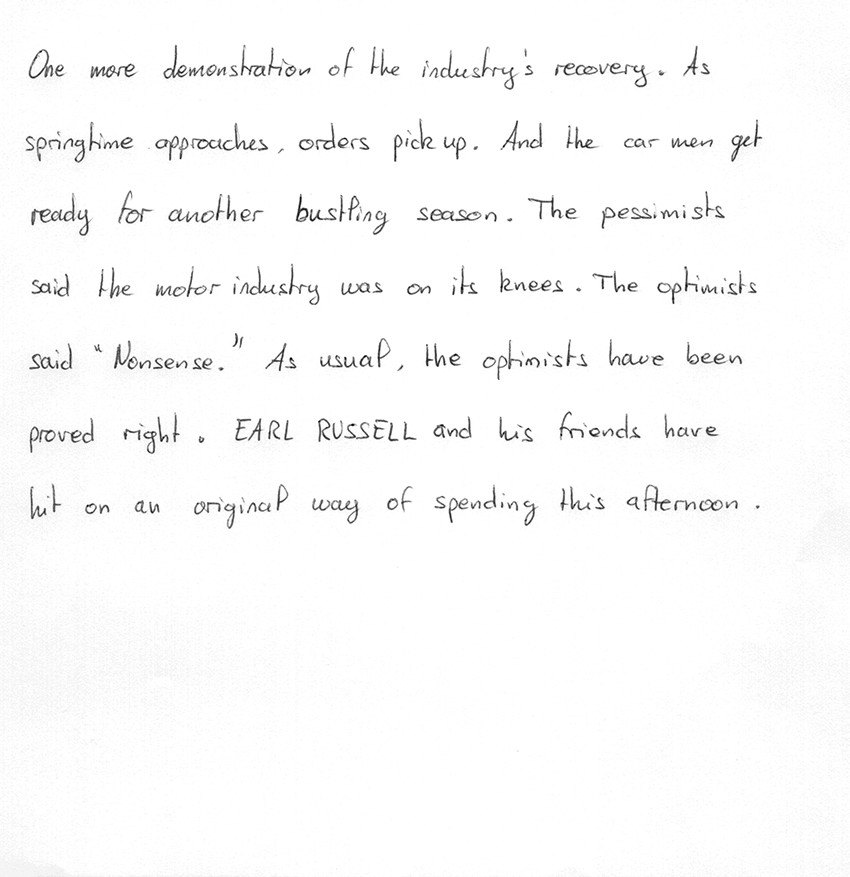 One more demonstration of the industry's recovery. As
springtime approaches, orders pick up. And the car men get
ready for another bustling season. The pessimists
said the motor industry was on its knees. The optimists
said "Nonsense." As usual, the optimists have been
proved right. EARL RUSSELL and his friends have
hit on an original way of spending this afternoon.